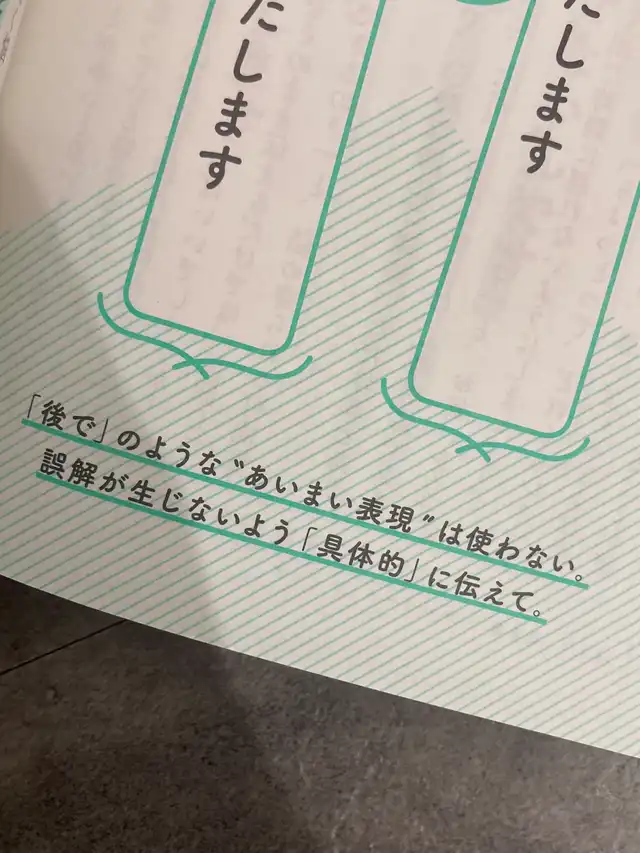 たします
たします
「後で」のような“あいまい表現”は使わない。
誤解が生じないよう「具体的」に伝えて。